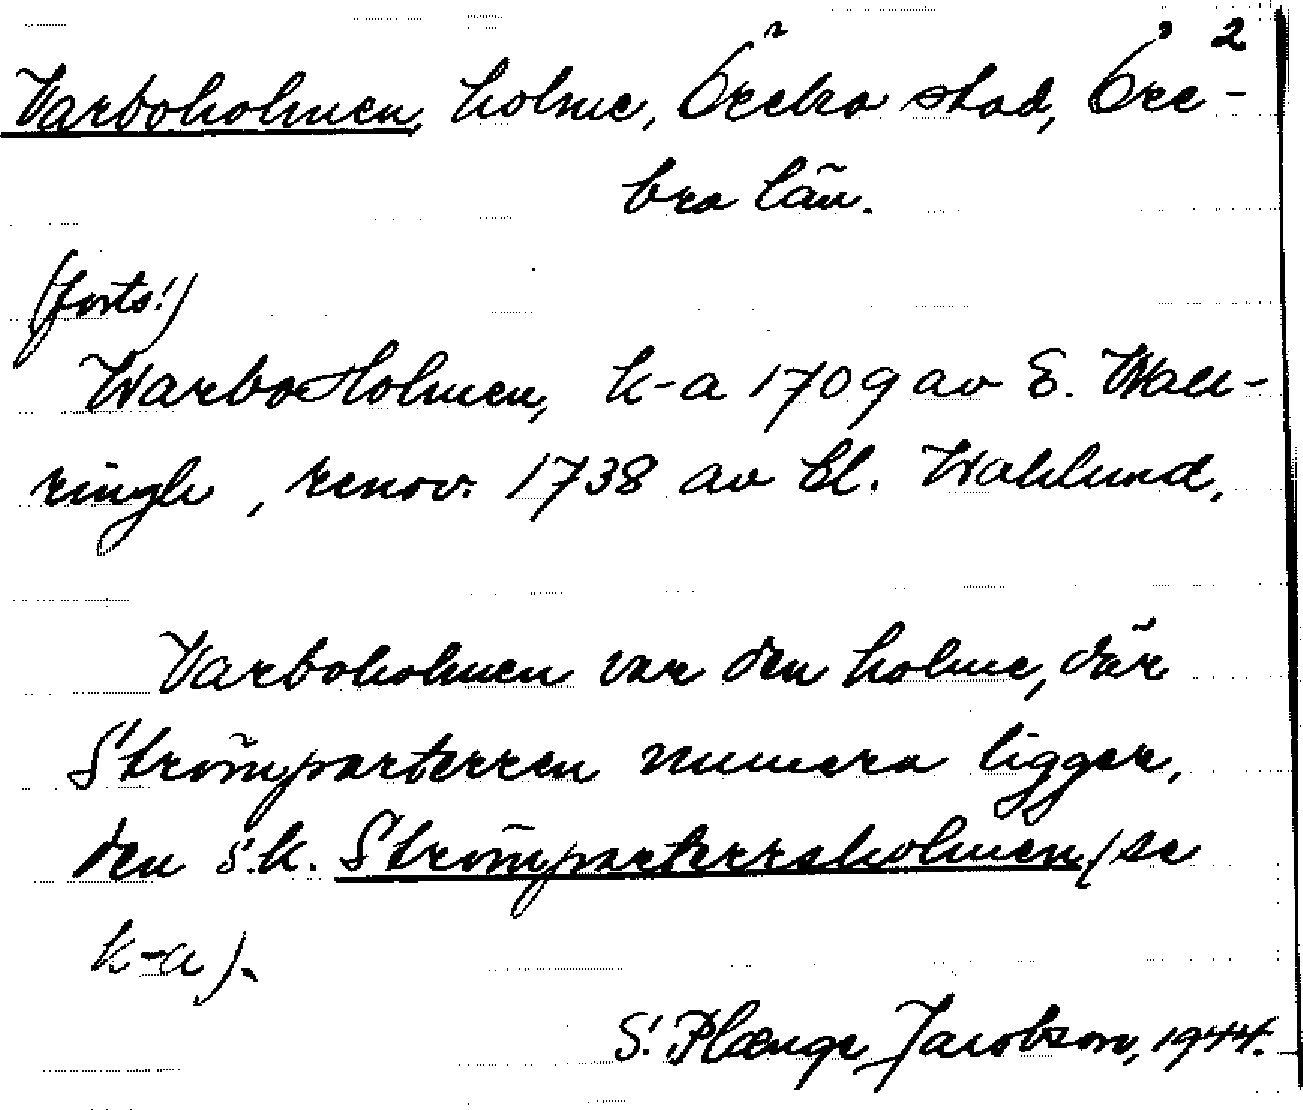 2
Varboholmen, holme, Örebro stad, Öre-
bro län.
(forts.)
Warbo Holmen, k-a 1709 av E. Wall-
ringh, renov. 1738 av El. Wahlund.
Varboholmen var den holme, där
Strömparterren numera ligger,
den s.k. Strömparterrsholmen (se
k-a).
S. Plænge Jacobson, 1944.